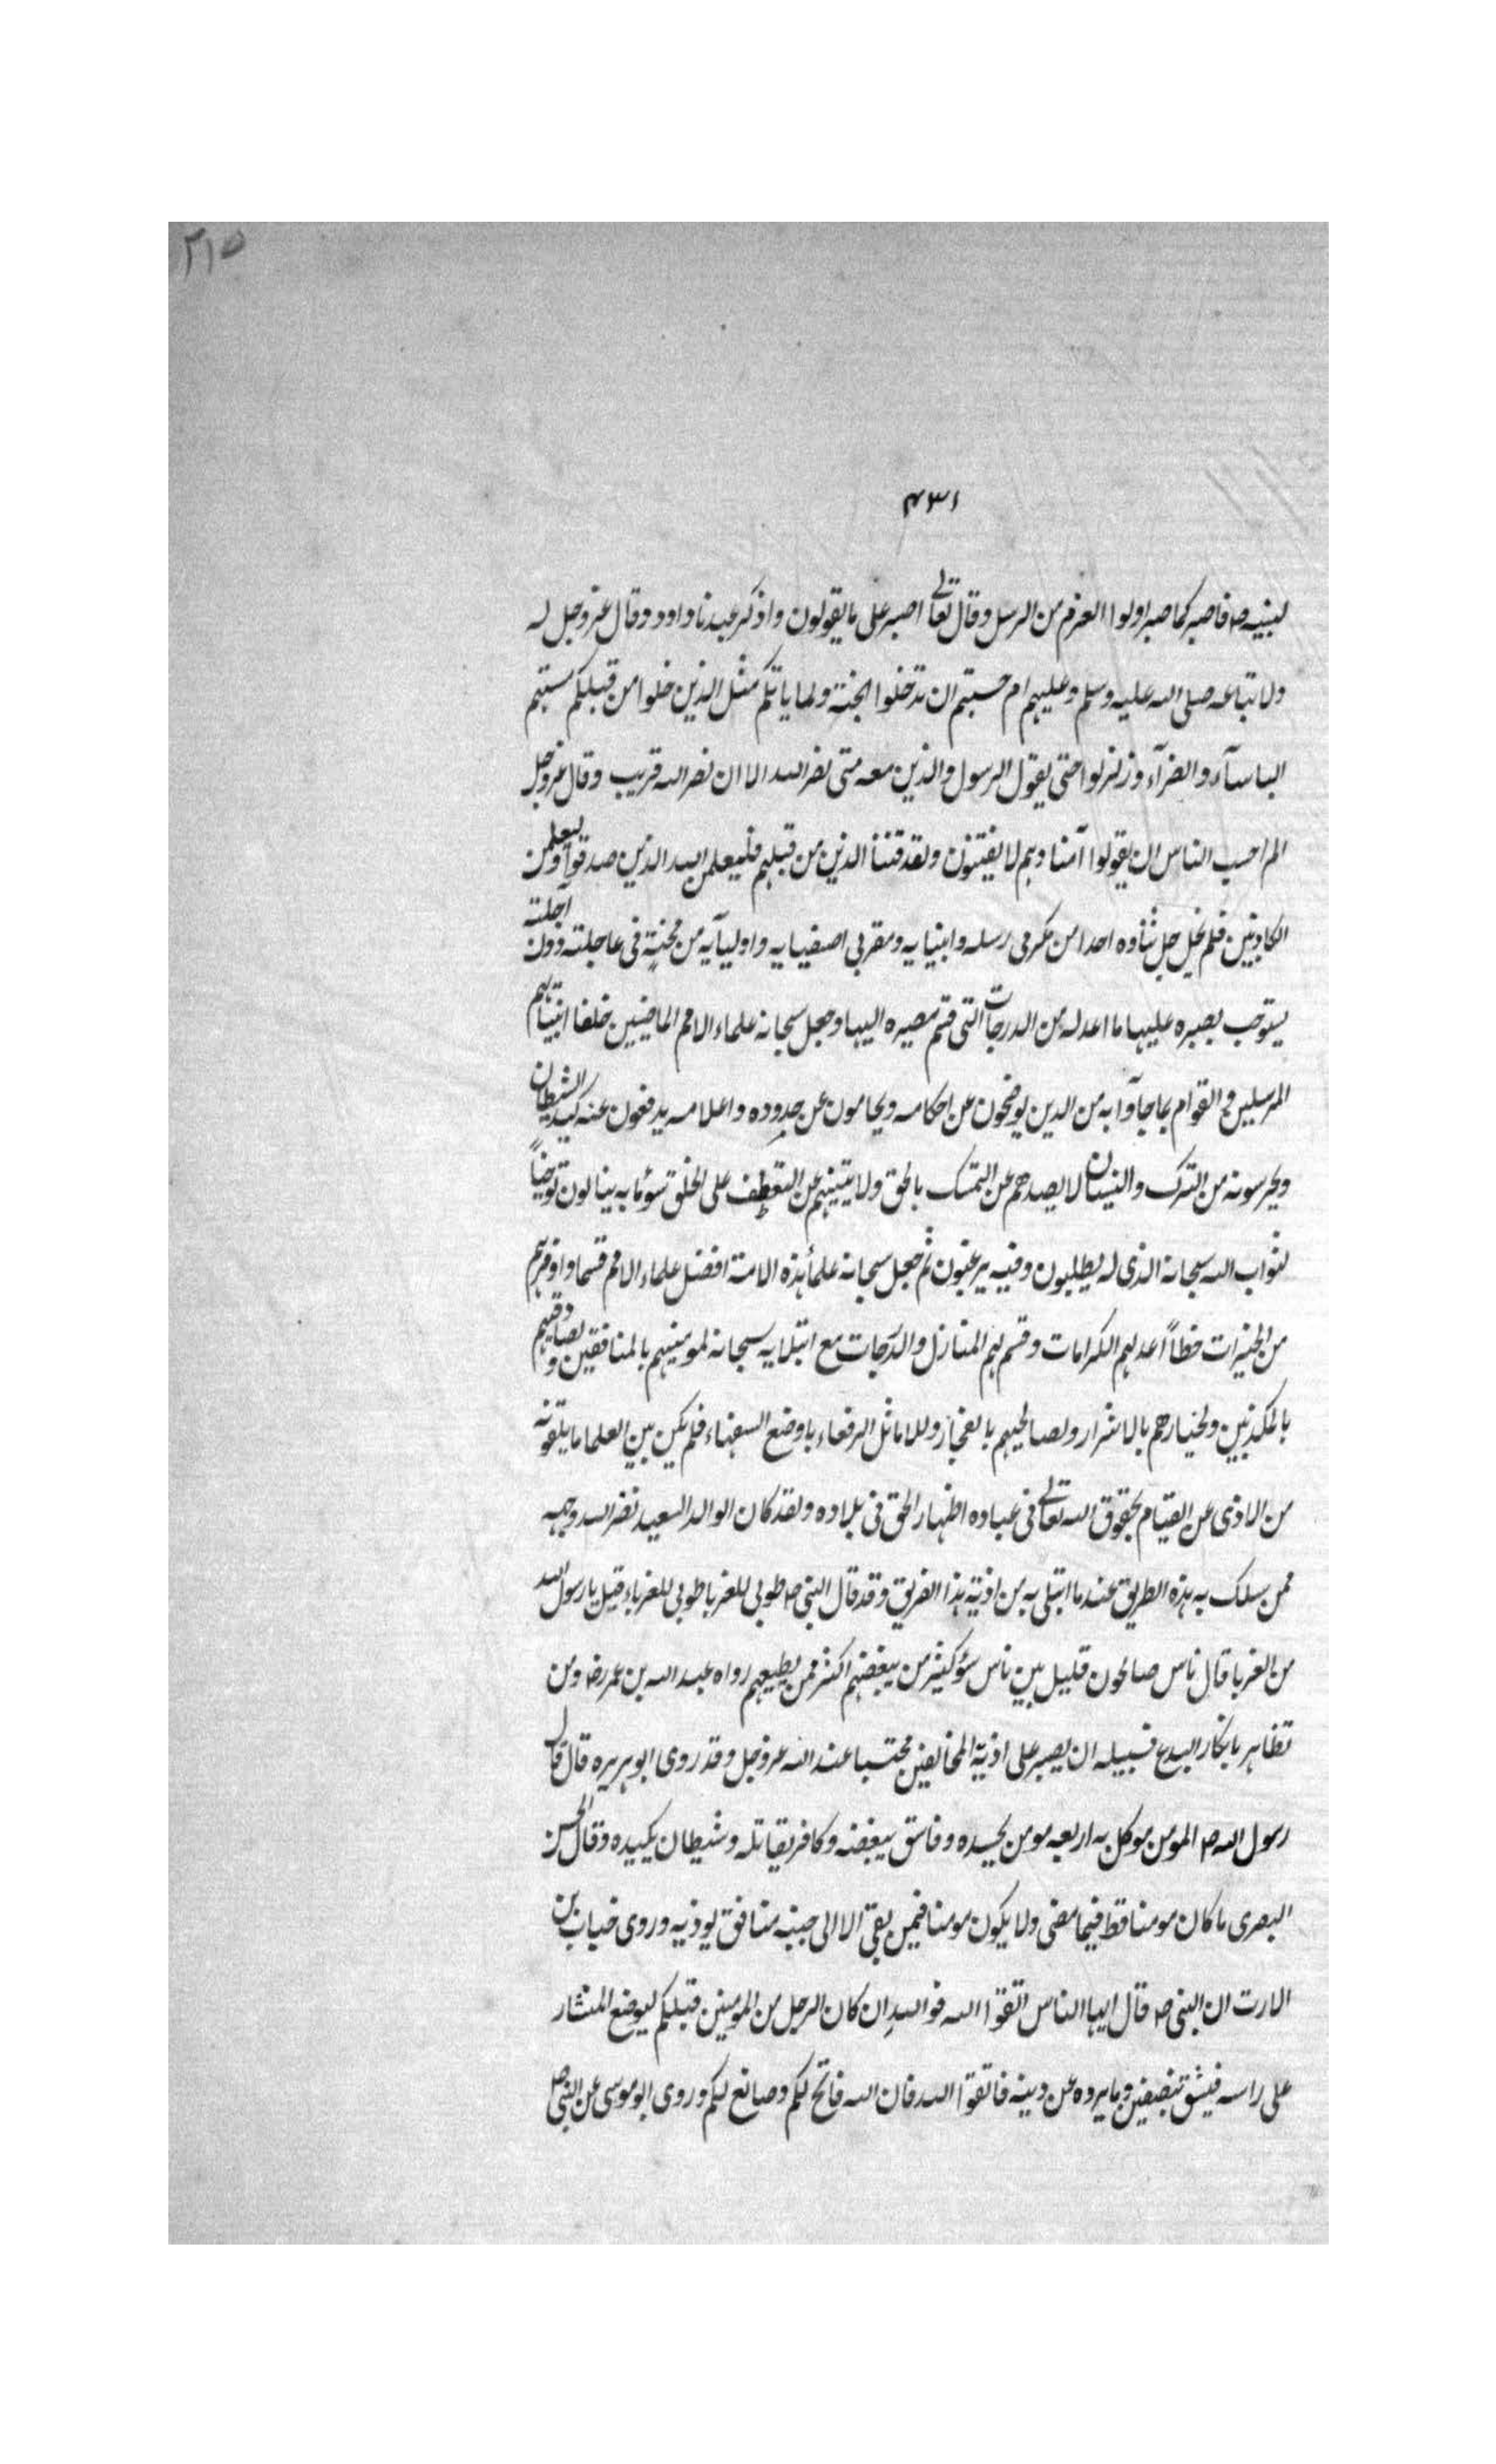 ٢١٥
٤٣١
لنبيه ص فاصبر كما صبر اولوا العزم من الرسل وقال تعالى اصبر على ما يقولون واذكر عبدنا داود وقال عز وجل له
ولاتباعه صلى الله عليه وسلم وعليهم ام حسبتم ان تدخلوا الجنة ولما ياتكم مثل الذين خلوا من قبلكم مستهم
الباسآء والضرآء وزلزلوا حتى يقول الرسول والذين معه متى نصر الله الا ان نصر الله قريب وقال عز وجل
الم احسب الناس ان يقولوا آمنا وهم لا يفتنون ولقد فتنا الذين من قبلهم فليعلمن الله الذين صدقوا وليعلمن
الكاذبين فلم يخل جل ثناوه احدا من مكرمى رسله وانبيايه ومقربى اصفيايه واوليآيه من محنة فى عاجلته دون آجلته
يستوجب بصبره عليها ما اعد له من الدرجات التى قسم مصيره اليها وجعل سبحانه علماء الامم الماضين خلفا انبيآئهم
المرسلين والقوام بما جآوا به من الدين يوضحون عن احكامه ويحامون عن حدوده واعلامه يدفعون عنه كيد الشيطان
ويحرسونه من الترك والنسيان لا يصدهم عن التمسك بالحق ولا يثنيهم عن التعطف على الخلق سوء ما به ينالون توخياً
لثواب الله سبحانه الذى له يطلبون وفيه يرغبون ثم جعل سبحانه علمآ هذه الامة افضل علماء الامم قسما واوفرهم
من الخيرات حظاً اعد لهم الكرامات وقسم لهم المنازل والدرجات مع ابتلايه سبحانه لمومنيهم بالمنافقين ولصادقيهم
بالمكذبين ولخيارهم بالاشرار ولصالحيهم بالفجار وللاماثل الرفعاء باوضع السفهاء فلم يكن بين العلما ما يلقونه
من الاذى عن القيام بحقوق الله تعالى فى عباده اظهار الحق فى بلاده ولقد كان الوالد السعيد نضر الله وجهه
ممن سلك به هذه الطريق عند ما ابتلى به من اذية هذا الفريق وقد قال النبى ص طوبى للغربا طوبى للغرباء قيل يا رسول الله
من الغربا قال ناس صالحون قليل بين ناس سوء كثير من يبغضهم اكثر ممن يطيعهم رواه عبد الله بن عمر رض ومن
تظاهر بانكار البدع فسبيله ان يصبر على اذية المخالفين محتسبا عند الله عز وجل وقد روى ابو هريره قال قال
رسول الله ص المومن موكل به اربعه مومن يحسده وفاسق يبغضه وكافر يقاتله وشيطان يكيده وقال الحسن
البصرى ما كان مومنا قط فيما مضى ولا يكون مومنا فيمن بقى الا الى جنبه منافق يوذيه وروى خباب بن
الارت ان النبى ص قال ايها الناس اتقوا الله فوالله ان كان الرجل من المومنين قبلكم ليوضع المنشار
على راسه فيشق بنصفين وما يرده عن دينه فاتقوا الله فان الله فاتح لكم وصانع لكم وروى ابو موسى عن النبى ص